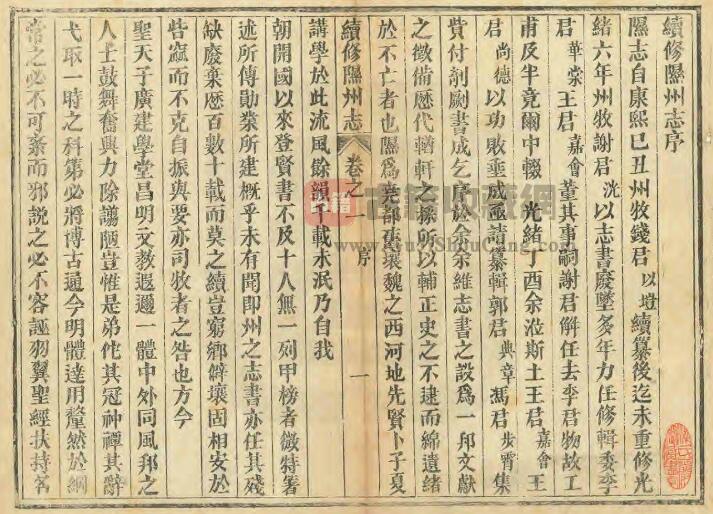 續修隰州志序
隰志自康熙己丑州牧錢君以塏續纂後迄未重修光
緒六年州牧謝君洸以志書廢墜多年力任修輯委李
君華棠王君嘉會董其事嗣謝君解任去李君物故工
甫及半竟爾中輟光緒丁酉余涖斯土王君嘉會王
君尚德以功敗垂成亟請纂輯郭君典章馮君步霄集
貲付剞劂書成乞序於余余維志書之設爲一邦文獻
之徵備歷代輶軒之採所以輔正史之不逮而綿遺緒
於不亡者也隰爲堯都舊壤魏之西河地先賢卜子夏
續修隰州志
卷之一
序
一
講學於此流風餘韻千載未泯乃自我
朝開國以來登賢書不及十人無一列甲榜者微特著
述所傳勛業所建概乎未有聞即州之志書亦任其殘
缺廢棄歷百數十載而莫之續豈窮鄉僻壤固相安於
呰窳而不克自振與要亦司牧者之咎也方今
聖天子廣建學堂昌明文教遐邇一體中外同風邦之
人士鼓舞奮興力除譾陋豈惟是弟佗其冠神禫其辭
弋取一時之科第必將博古通今明體達用釐然於綱
常之必不可紊而邪說之必不容誣羽翼聖經扶持名
古籍收藏網
www.GuJiShouCang.com